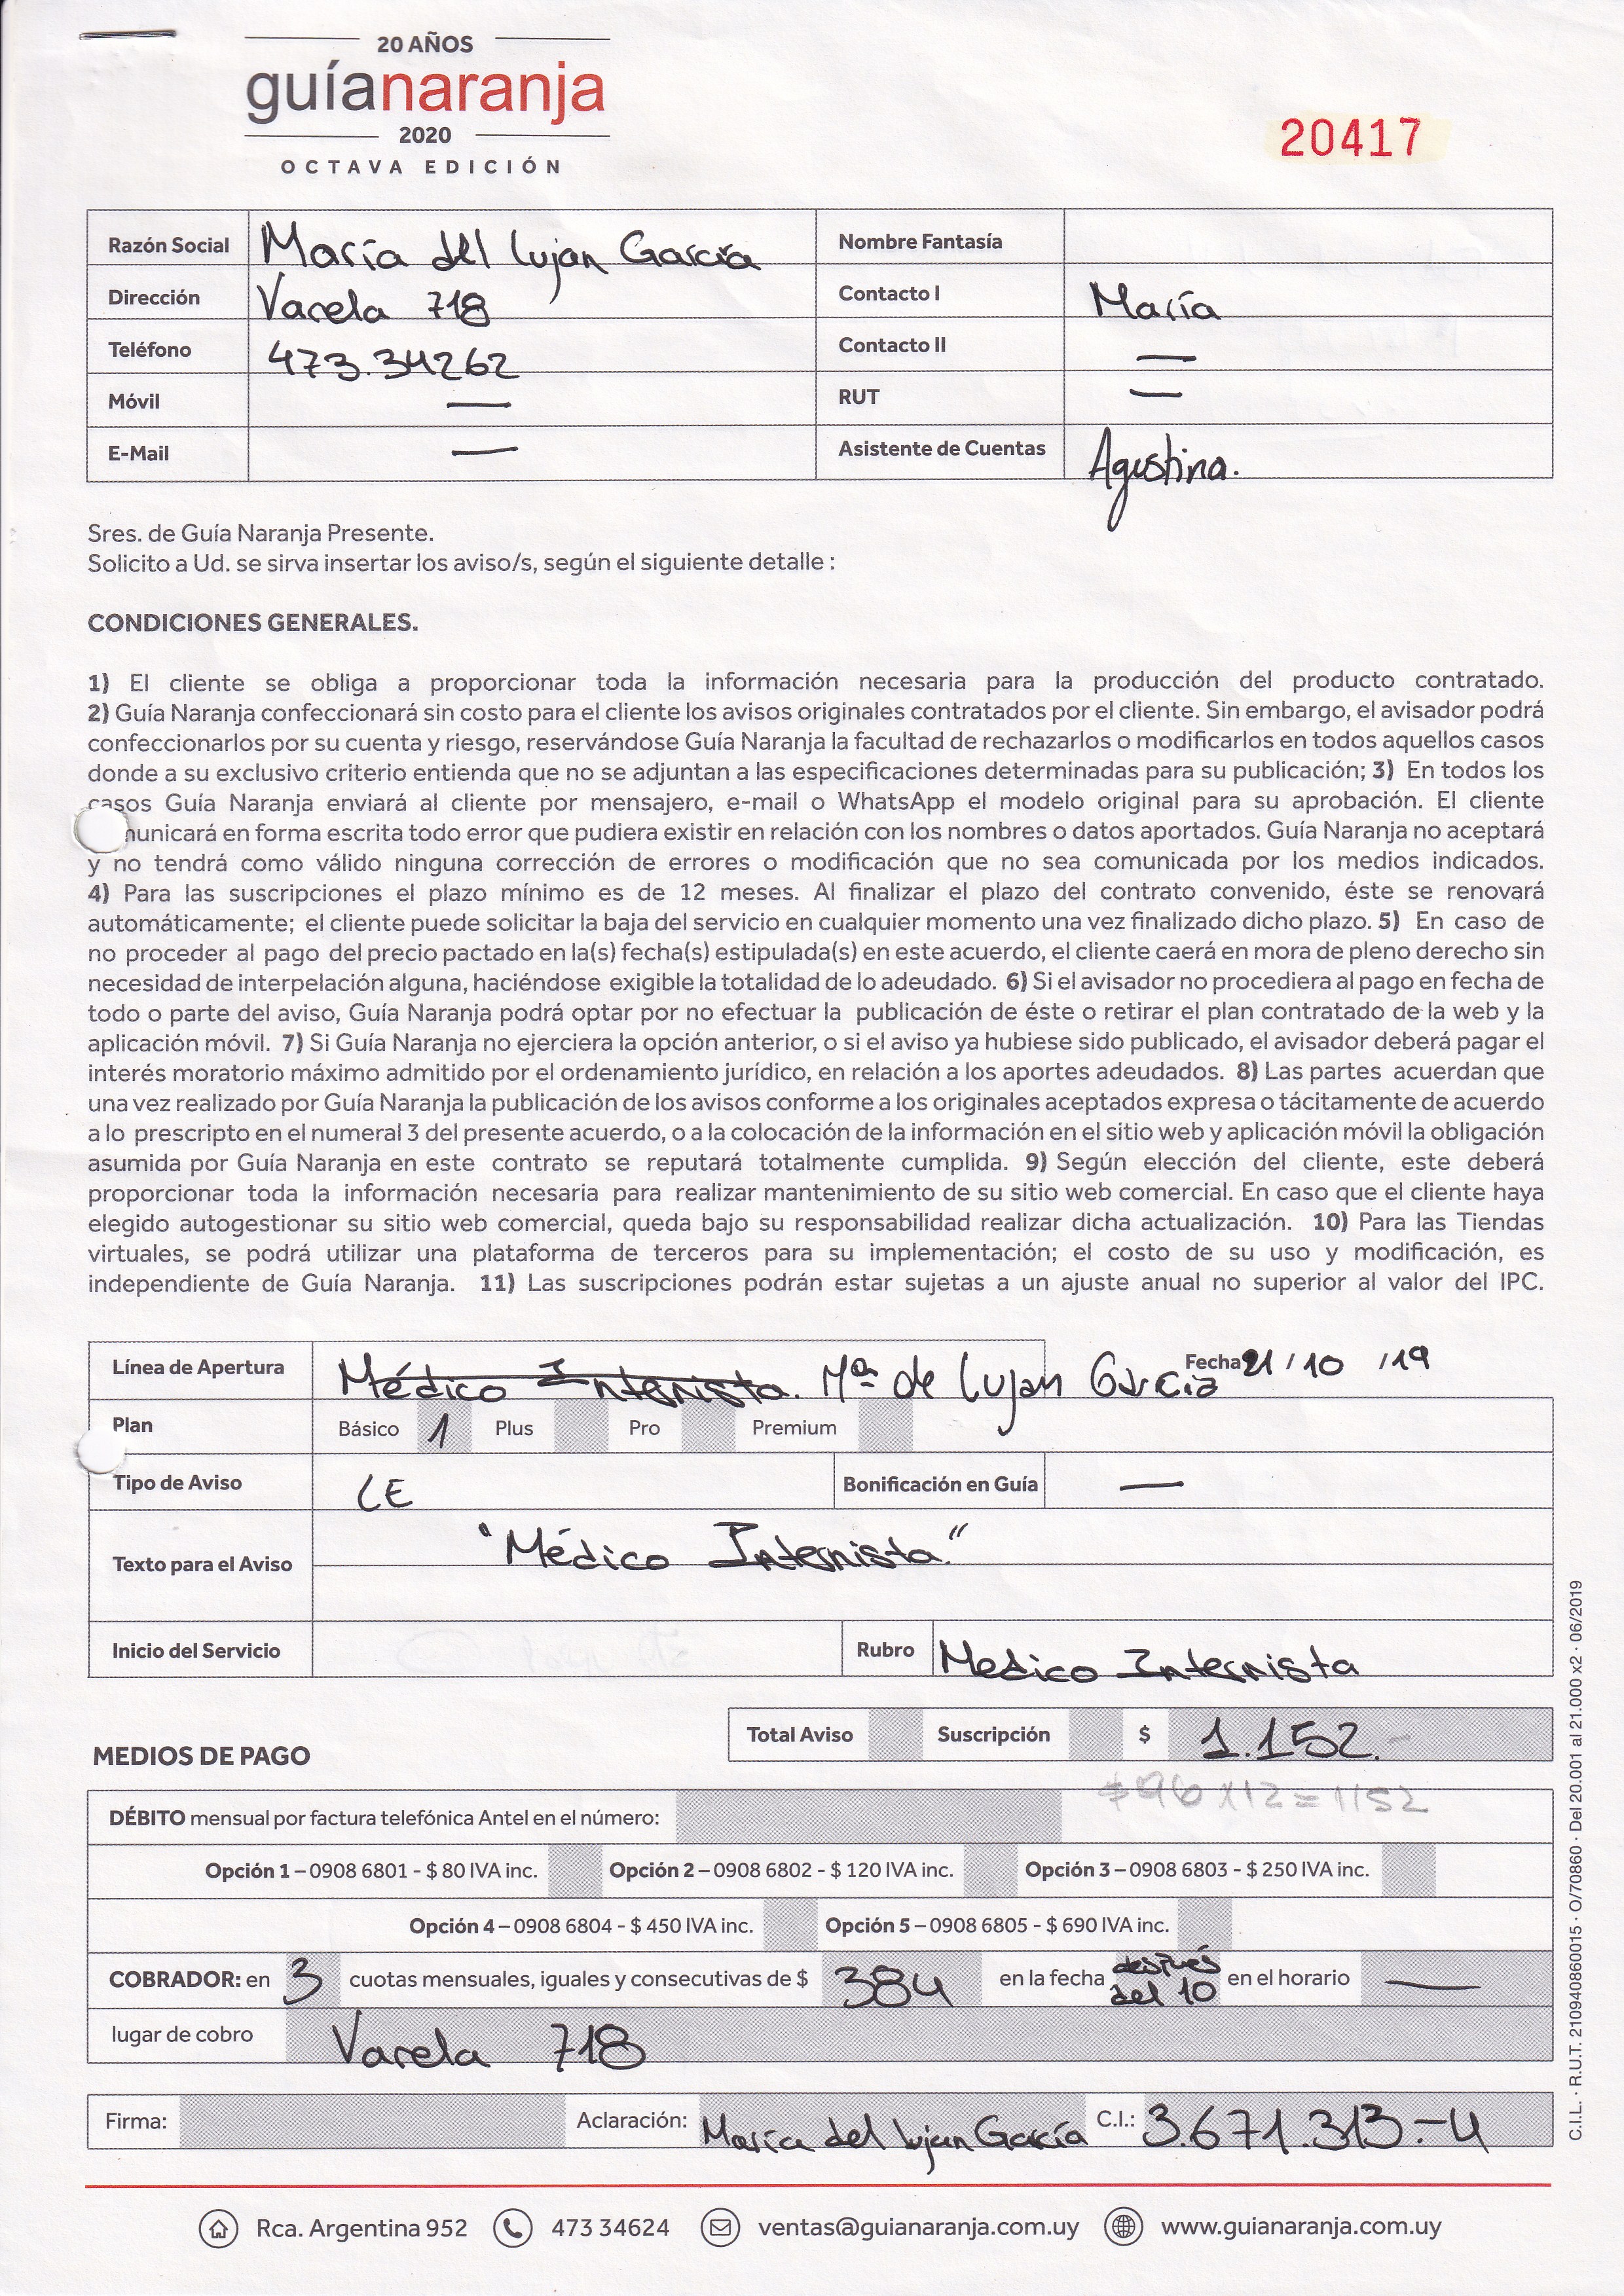 20 AÑOS
guíanaranja
2020
OCTAVA EDICIÓN
20417
Razón Social María del Lujan García Nombre Fantasía
Dirección Varela 718 Contacto I María
Teléfono 473.34262 Contacto II —
Móvil — RUT —
E-Mail — Asistente de Cuentas Agustina.
Sres. de Guía Naranja Presente.
Solicito a Ud. se sirva insertar los aviso/s, según el siguiente detalle :
CONDICIONES GENERALES.
1) El cliente se obliga a proporcionar toda la información necesaria para la producción del producto contratado.
2) Guía Naranja confeccionará sin costo para el cliente los avisos originales contratados por el cliente. Sin embargo, el avisador podrá
confeccionarlos por su cuenta y riesgo, reservándose Guía Naranja la facultad de rechazarlos o modificarlos en todos aquellos casos
donde a su exclusivo criterio entienda que no se adjuntan a las especificaciones determinadas para su publicación; 3) En todos los
casos Guía Naranja enviará al cliente por mensajero, e-mail o WhatsApp el modelo original para su aprobación. El cliente
municará en forma escrita todo error que pudiera existir en relación con los nombres o datos aportados. Guía Naranja no aceptará
y no tendrá como válido ninguna corrección de errores o modificación que no sea comunicada por los medios indicados.
4) Para las suscripciones el plazo mínimo es de 12 meses. Al finalizar el plazo del contrato convenido, éste se renovará
automáticamente; el cliente puede solicitar la baja del servicio en cualquier momento una vez finalizado dicho plazo. 5) En caso de
no proceder al pago del precio pactado en la(s) fecha(s) estipulada(s) en este acuerdo, el cliente caerá en mora de pleno derecho sin
necesidad de interpelación alguna, haciéndose exigible la totalidad de lo adeudado. 6) Si el avisador no procediera al pago en fecha de
todo o parte del aviso, Guía Naranja podrá optar por no efectuar la publicación de éste o retirar el plan contratado de la web y la
aplicación móvil. 7) Si Guía Naranja no ejerciera la opción anterior, o si el aviso ya hubiese sido publicado, el avisador deberá pagar el
interés moratorio máximo admitido por el ordenamiento jurídico, en relación a los aportes adeudados. 8) Las partes acuerdan que
una vez realizado por Guía Naranja la publicación de los avisos conforme a los originales aceptados expresa o tácitamente de acuerdo
a lo prescripto en el numeral 3 del presente acuerdo, o a la colocación de la información en el sitio web y aplicación móvil la obligación
asumida por Guía Naranja en este contrato se reputará totalmente cumplida. 9) Según elección del cliente, este deberá
proporcionar toda la información necesaria para realizar mantenimiento de su sitio web comercial. En caso que el cliente haya
elegido autogestionar su sitio web comercial, queda bajo su responsabilidad realizar dicha actualización. 10) Para las Tiendas
virtuales, se podrá utilizar una plataforma de terceros para su implementación; el costo de su uso y modificación, es
independiente de Guía Naranja. 11) Las suscripciones podrán estar sujetas a un ajuste anual no superior al valor del IPC.
Línea de Apertura Médico Internista. Mª de Lujan García Fecha 21 / 10 / 19
Plan Básico 1 Plus Pro Premium
Tipo de Aviso LE Bonificación en Guía —
Texto para el Aviso "Médico Internista."
Inicio del Servicio Rubro Medico Internista
Total Aviso Suscripción $ 1.152.-
MEDIOS DE PAGO
$96 x12 = 1152
DÉBITO mensual por factura telefónica Antel en el número:
Opción 1 – 0908 6801 - $ 80 IVA inc. Opción 2 – 0908 6802 - $ 120 IVA inc. Opción 3 – 0908 6803 - $ 250 IVA inc.
Opción 4 – 0908 6804 - $ 450 IVA inc. Opción 5 – 0908 6805 - $ 690 IVA inc.
COBRADOR: en 3 cuotas mensuales, iguales y consecutivas de $ 384 en la fecha después del 10 en el horario —
lugar de cobro Varela 718
Firma: Aclaración: María del Lujan García C.I.: 3.671.313.-4
C.I.L. · R.U.T. 210940860015 · O/70860 · Del 20.001 al 21.000 x2 · 06/2019
Rca. Argentina 952 473 34624 ventas@guianaranja.com.uy www.guianaranja.com.uy